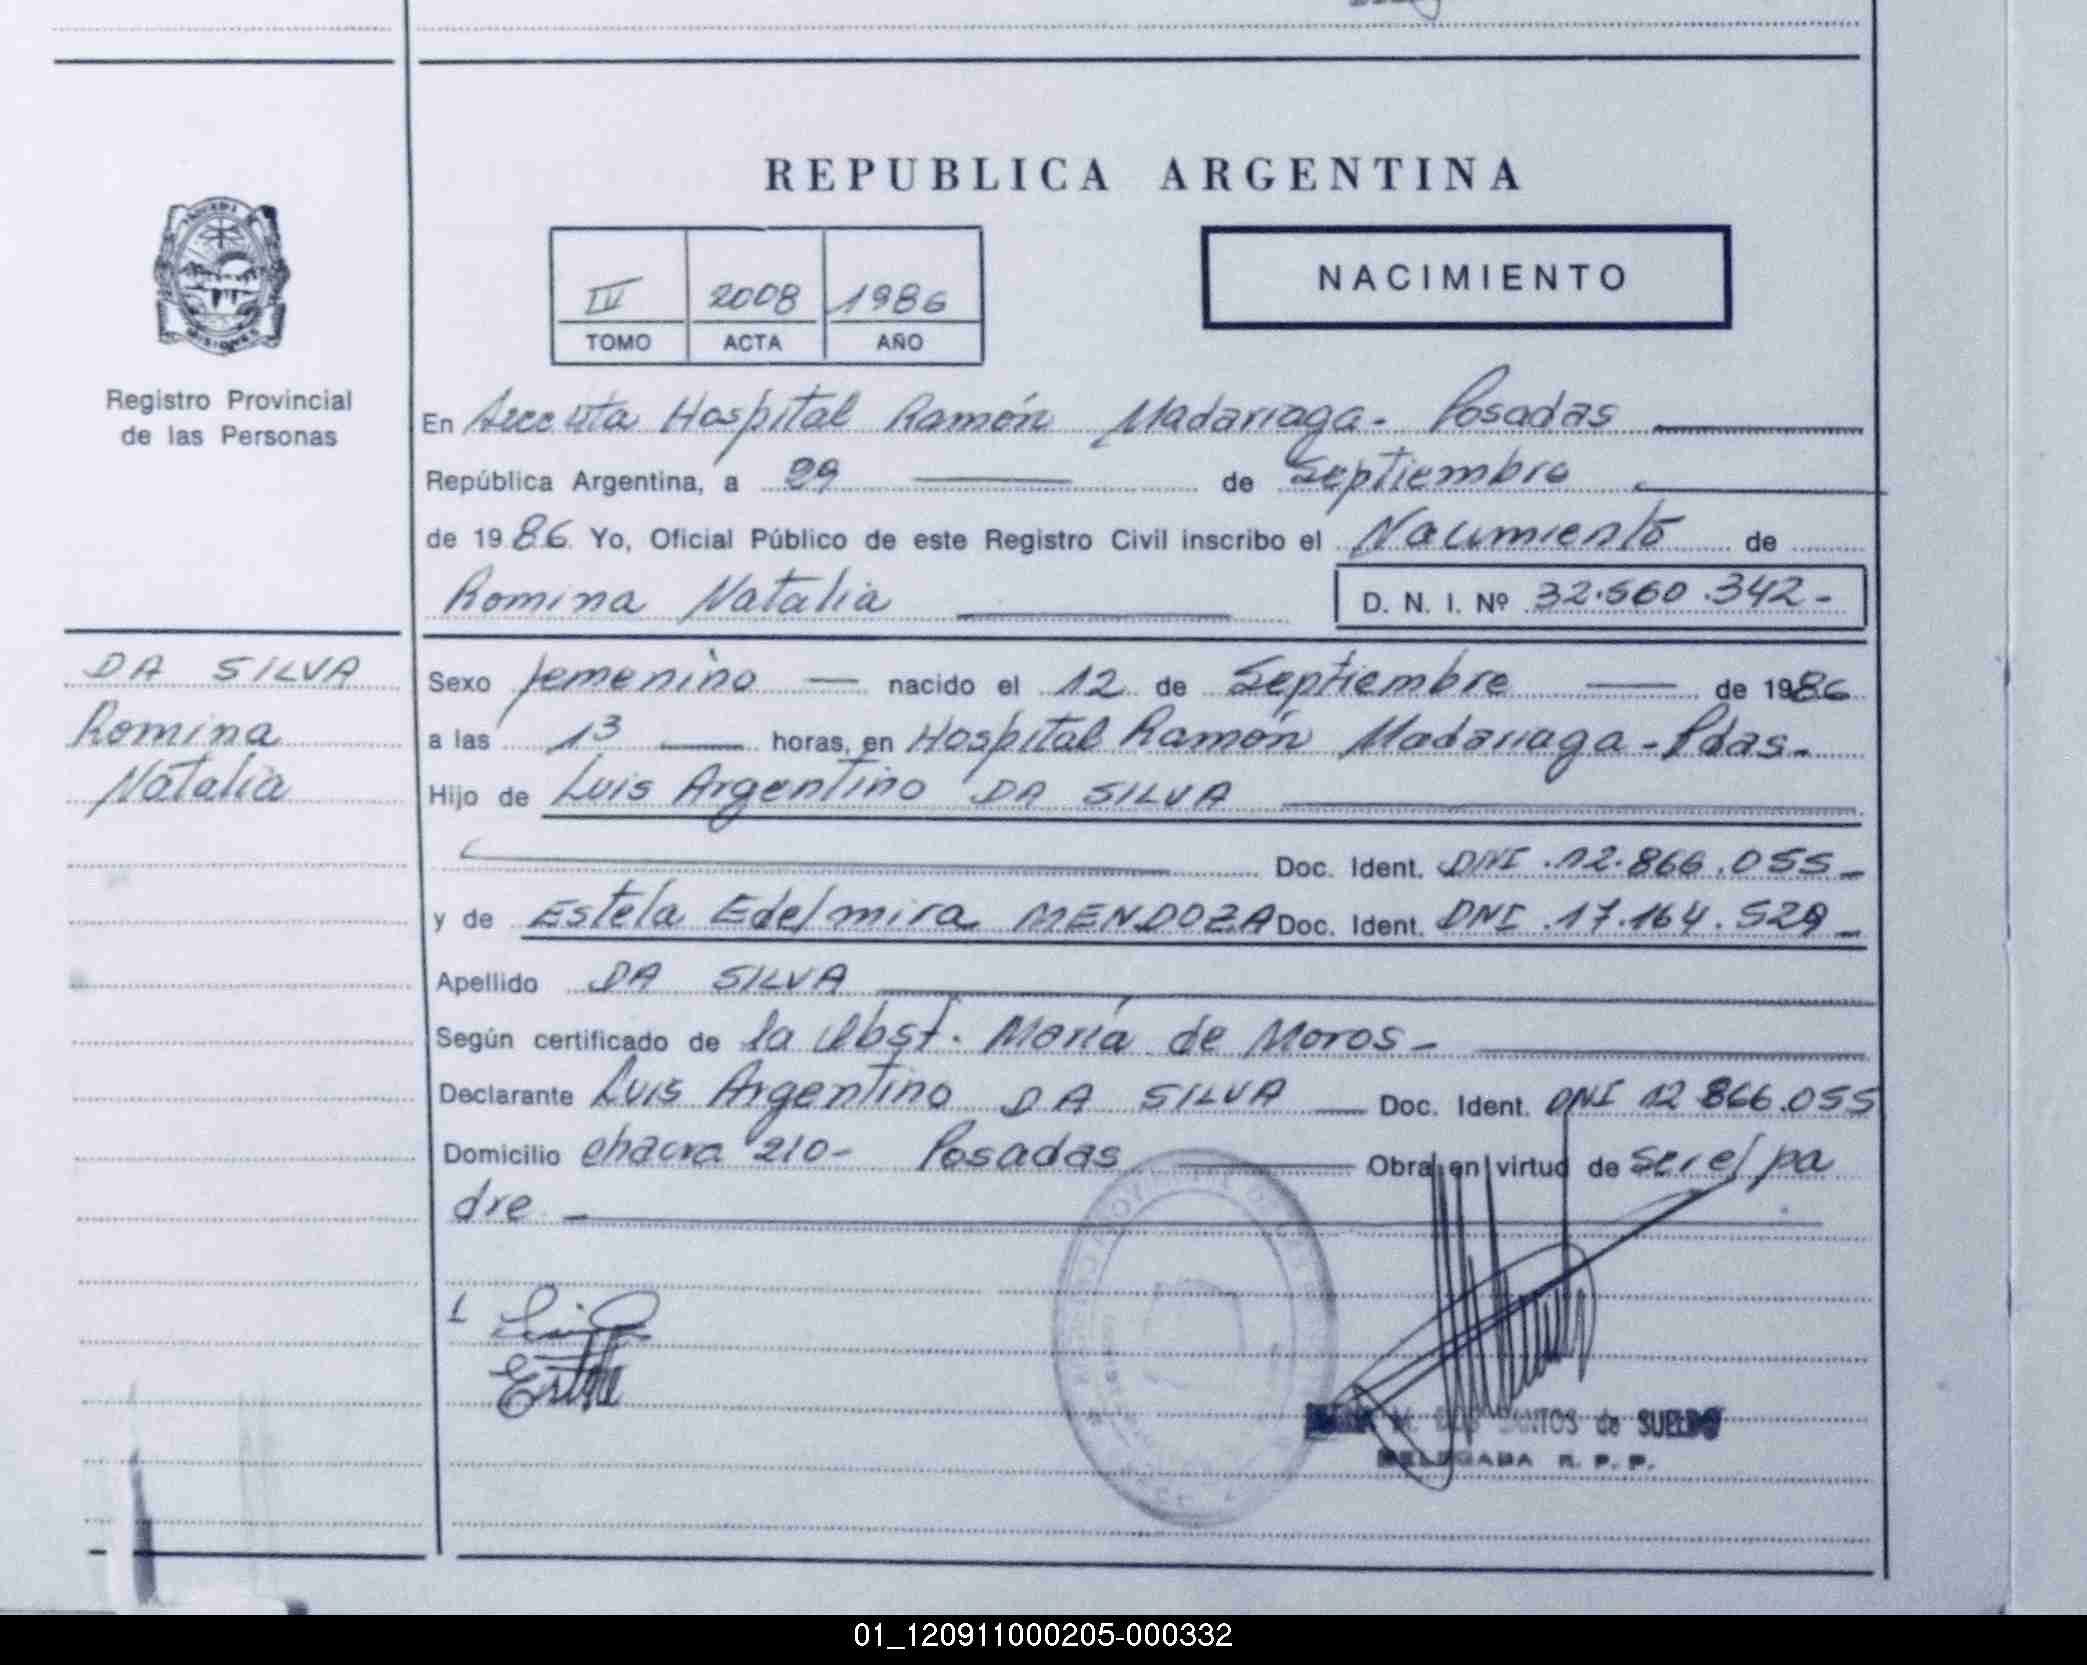 REPUBLICA ARGENTINA
IV 2008 1986
TOMO ACTA AÑO
NACIMIENTO
Registro Provincial
de las Personas
En Hospital Ramón Madariaga - Posadas
República Argentina, a 29 de Septiembre
de 1986 Yo, Oficial Público de este Registro Civil inscribo el Nacimiento de
Romina Natalia D. N. I. Nº 32.560.342-
DA SILVA
Romina
Natalia
Sexo femenino nacido el 12 de Septiembre de 1986
a las 13 horas, en Hospital Ramón Madariaga - Pdas-
Hijo de Luis Argentino DA SILVA
Doc. Ident. DNI .12.866.055-
y de Estela Edelmira MENDOZA Doc. Ident. DNI .17.164.529-
Apellido DA SILVA
Según certificado de la Obst. María de Moros-
Declarante Luis Argentino DA SILVA Doc. Ident. DNI 12 866.055
Domicilio chacra 210- Posadas Obra en virtud de ser el pa
dre -
M. DOS SANTOS de SUELDO
DELEGADA R. P. P.
01_120911000205-000332